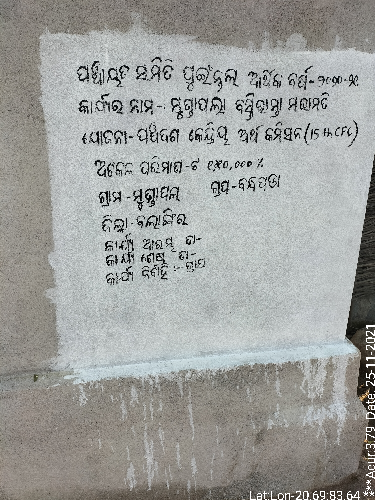 ପଞ୍ଚାୟତ ସମିତି ପୁଇଁତଲା ଆର୍ଥିକ ବର୍ଷ-୨୦୨୦-୨୧
କାର୍ଯ୍ୟର ନାମ-ମୁଗୁପାଲା ବସ୍ତିରାସ୍ତା ମରାମତି
ଯୋଜନା-ପଞ୍ଚଦଶ କେନ୍ଦ୍ରିୟ ଅର୍ଥ କମିସନ (15 th CFC)
ଅକଳ ପରିମାଣ-ଟ ୧୫୦,୦୦୦ %
ଗ୍ରାମ-ମୁଗୁପାଲା ଗ୍ରାପ-ବନ୍ଧପଡା
ଜିଲ୍ଲା-ବଲାଙ୍ଗିର
କାର୍ଯ୍ୟ ଆରମ୍ଭ ତା-
କାର୍ଯ୍ୟ ଶେଷ ତା-
କାର୍ଯ୍ୟ ନିର୍ବାହୀ :-
Lat Lon-20.69:83.64
***Acur:3.79 Date: 25-11-2021